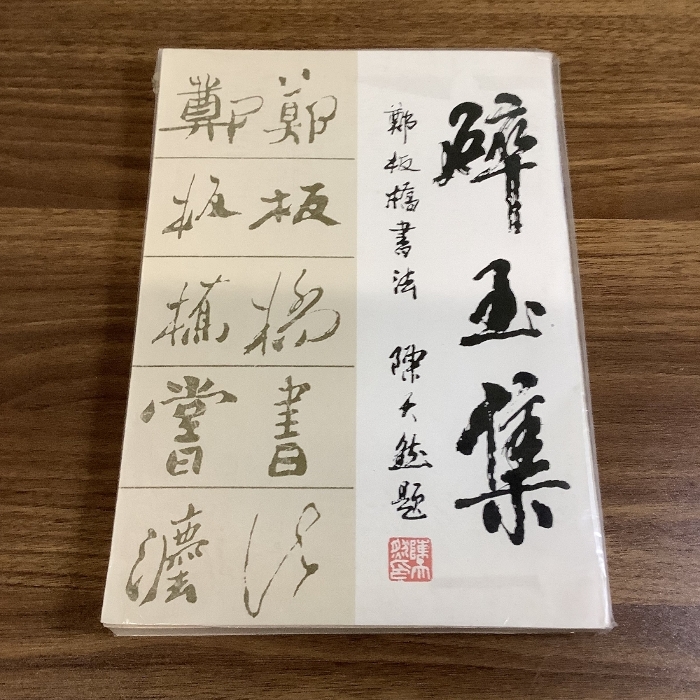 碎玉集
鄭板橋書法
陳大然題
鄭板橋書法
鄭板橋書法